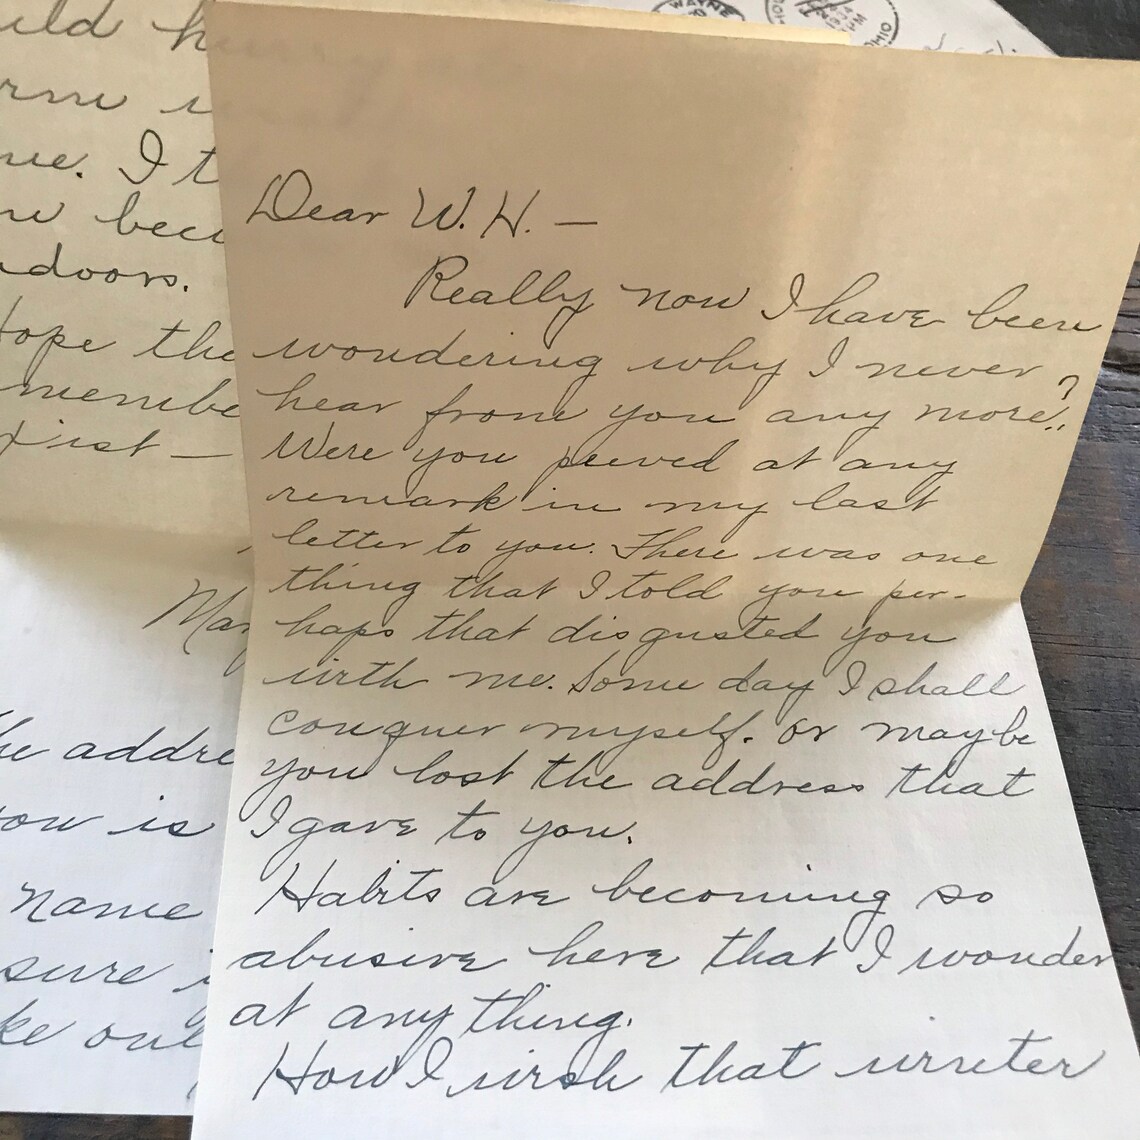 Dear W. H. —
Really now I have been
wondering why I never
hear from you any more?
Were you peeved at any
remark in my last
letter to you. There was one
thing that I told you per-
haps that disgusted you
with me. Some day I shall
conquer myself. or maybe
you lost the address that
I gave to you.
Habits are becoming so
abusive here that I wonder
at any thing.
How I wish that writer
uld
me. I t
bec
doors.
ope the
membe
ist —
Mar
he addre
ow is
name
sure
ke out
WAYNE
OHIO